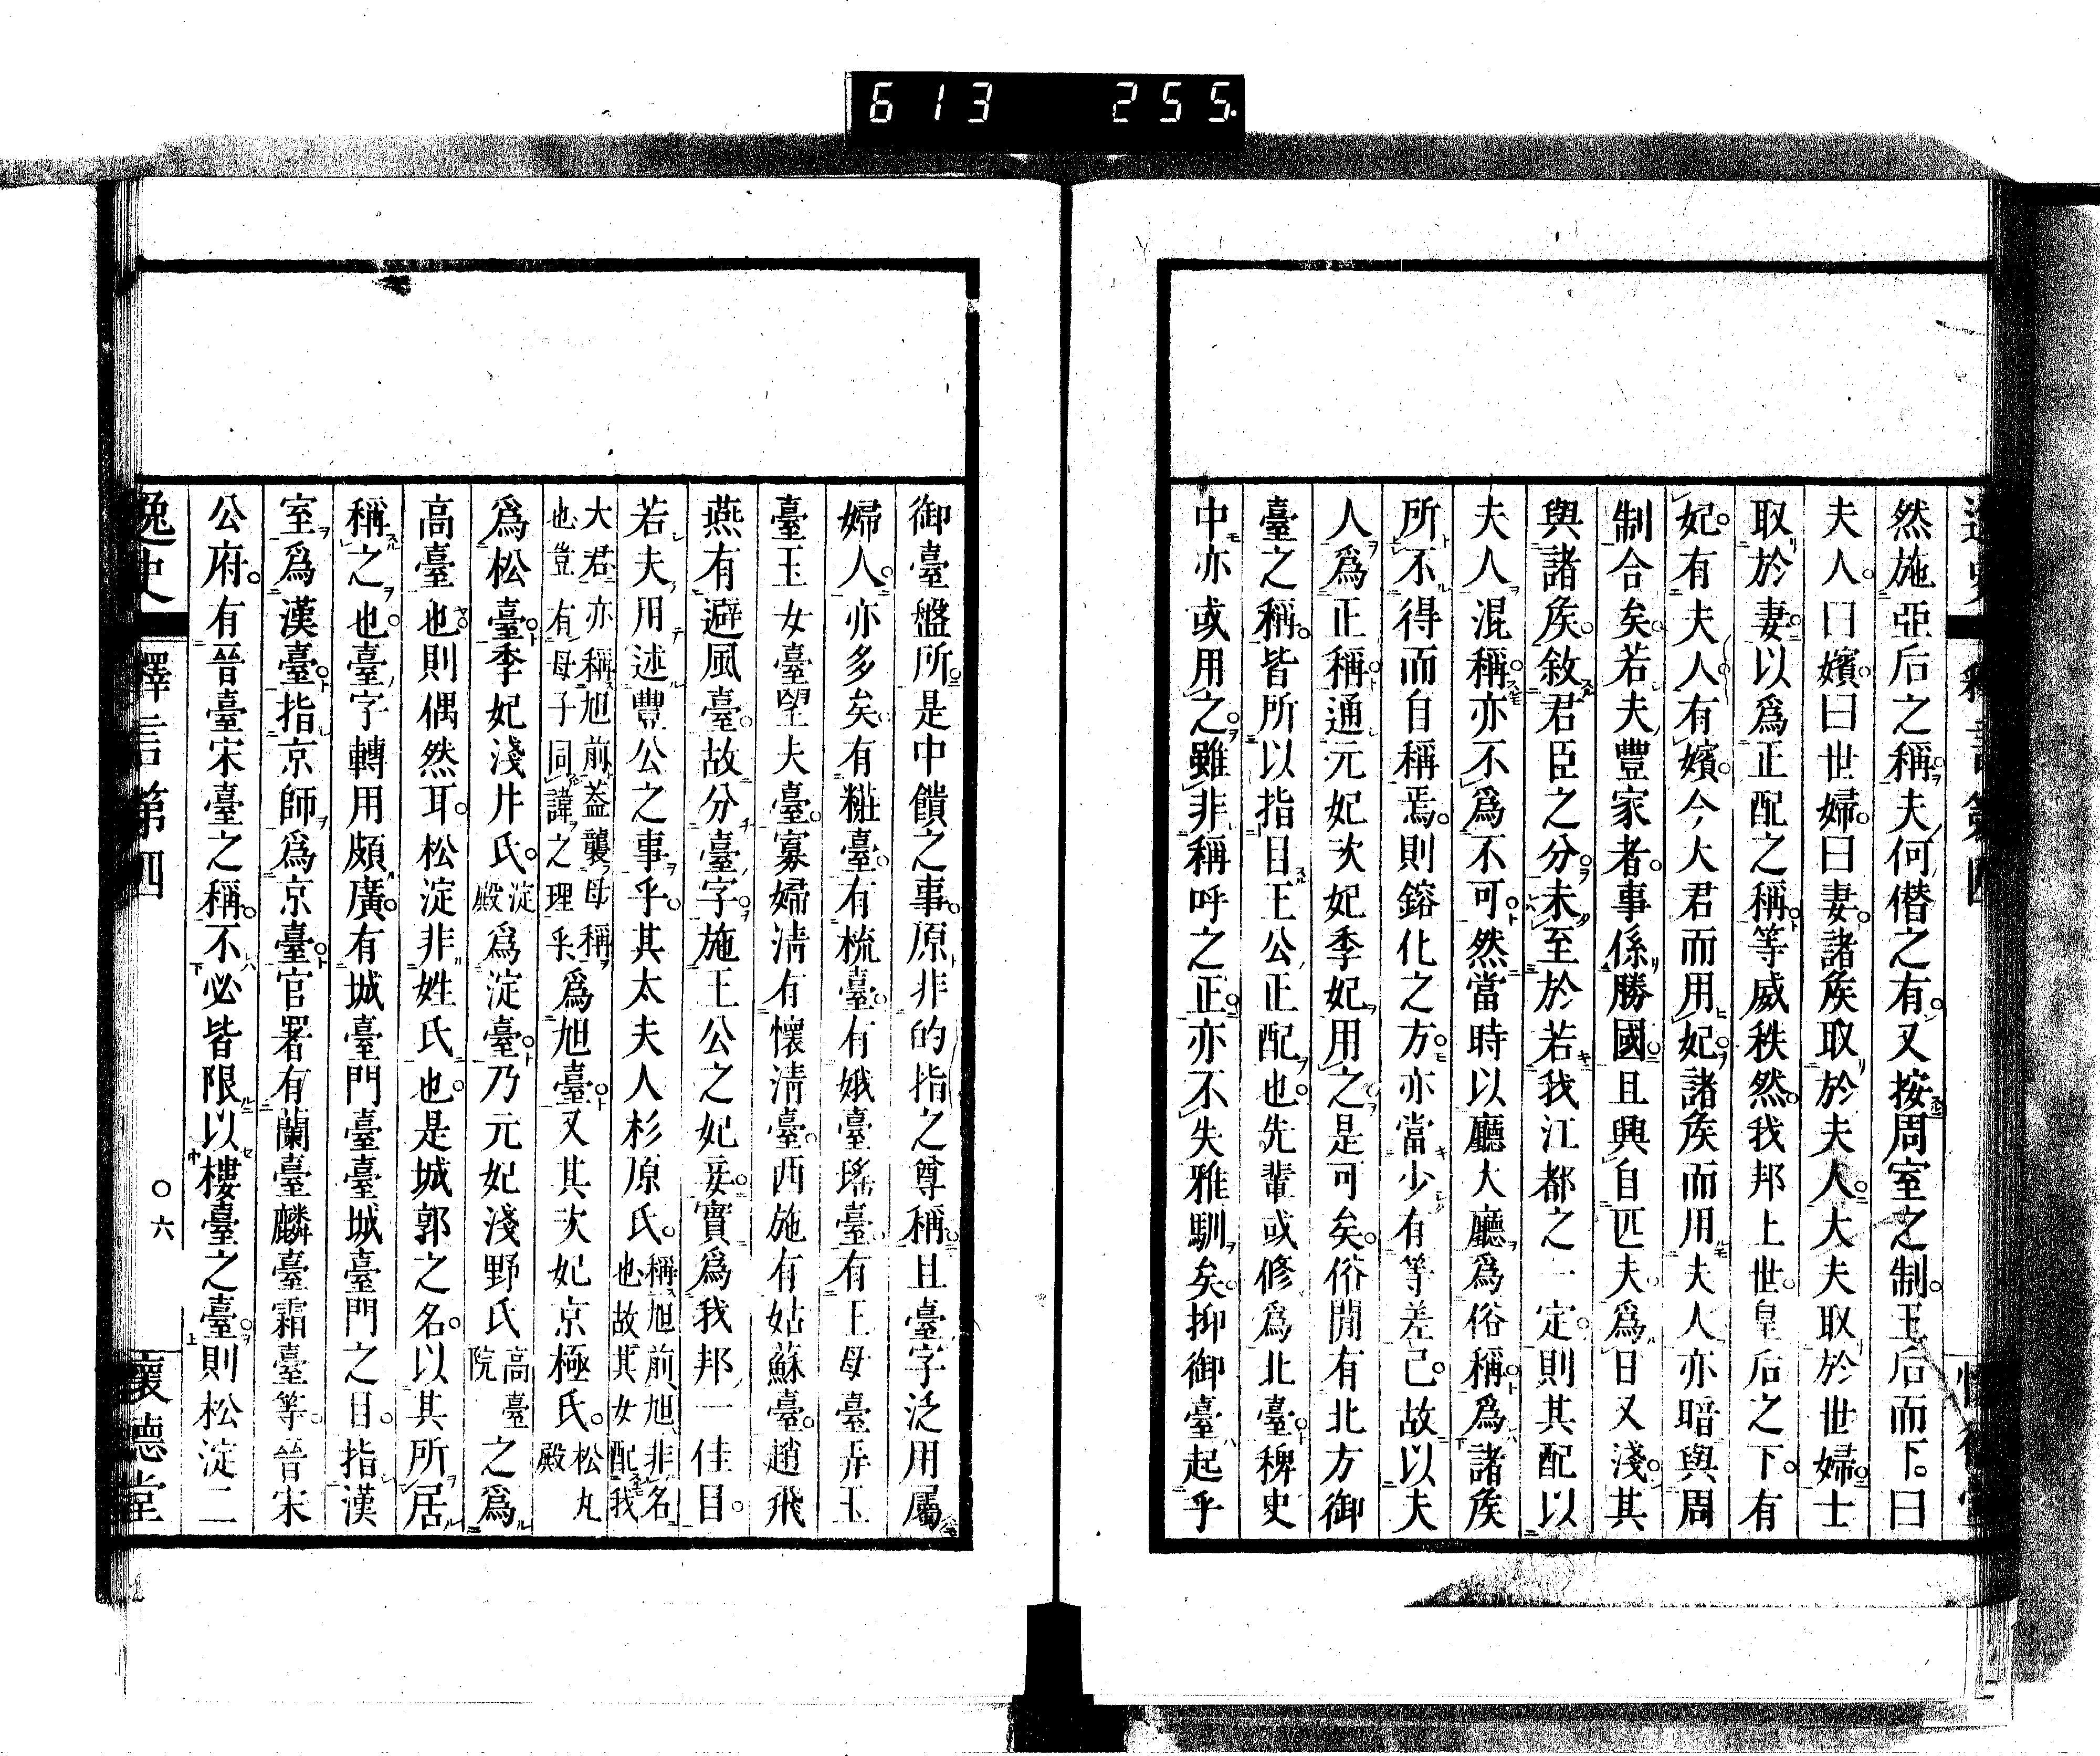 613 255
然施亞后之稱夫何僭之有又按周室之制王后而下曰
夫人曰嬪曰世婦曰妻諸矦取於夫人大夫取於世婦士
取於妻以爲正配之稱等威秩然我邦上世皇后之下有
妃有夫人有嬪今大君而用妃諸矦而用夫人亦暗與周
制合矣若夫豐家者事係勝國且興自匹夫爲日又淺其
與諸矦敘君臣之分未至於若我江都之一定則其配以
夫人混稱亦不爲不可然當時以廳大廳爲俗稱爲諸矦
所不得而自稱焉則鎔化之方亦當少有等差已故以夫
人爲正稱通元妃次妃季妃用之是可矣俗間有北方御
臺之稱皆所以指目王公正配也先輩或修爲北臺稗史
中亦或用之雖非稱呼之正亦不失雅馴矣抑御臺起乎
御臺盤所是中饋之事原非的指之尊稱且臺字泛用屬
婦人亦多矣有糚臺有梳臺有娥臺瑤臺有王母臺弄玉
臺玉女臺望夫臺寡婦淸有懷淸臺西施有姑蘇臺趙飛
燕有避風臺故分臺字施王公之妃妾實爲我邦一佳目
若夫用述豐公之事乎其太夫人杉原氏稱旭前旭非名也故其女配我
大君亦稱旭前蓋襲母稱也豈有母子同諱之理乎爲旭臺又其次妃京極氏松丸殿
爲松臺季妃淺井氏淀殿爲淀臺乃元妃淺野氏高臺院之爲
高臺也則偶然耳松淀非姓氏也是城郭之名以其所居
稱之也臺字轉用頗廣有城臺門臺臺城臺門之目指漢
室爲漢臺指京師爲京臺官署有蘭臺麟臺霜臺等晉宋
公府有晉臺宋臺之稱不必皆限以樓臺之臺則松淀二
逸史 釋言第四 〇六 懷德堂